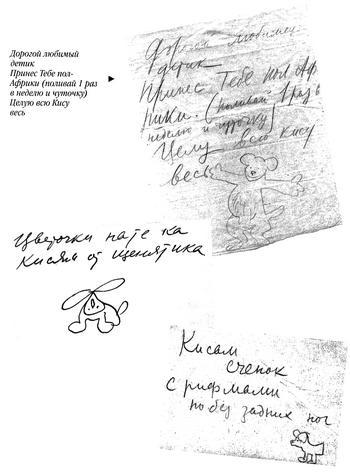 Дорогой любимый
детик
Принес Тебе пол-
Африки (поливай 1 раз
в неделю и чуточку)
Целую всю Кису
весь
Дорогой любимый
детик
Принес Тебе пол Аф
рики. (поливай 1 раз в
неделю и чуточку)
Целую всю Кису
весь
Цветочки нате ка
Кисям от щенятика
Кисам
сченок
с рифмами
но без задних ног